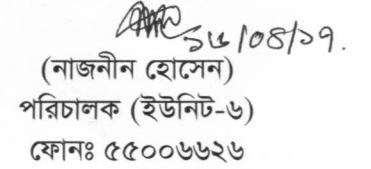 ১৫/০৪/১৭.
(নাজনীন হোসেন)
পরিচালক (ইউনিট-৬)
ফোনঃ ৫৫০০৬৬২৬